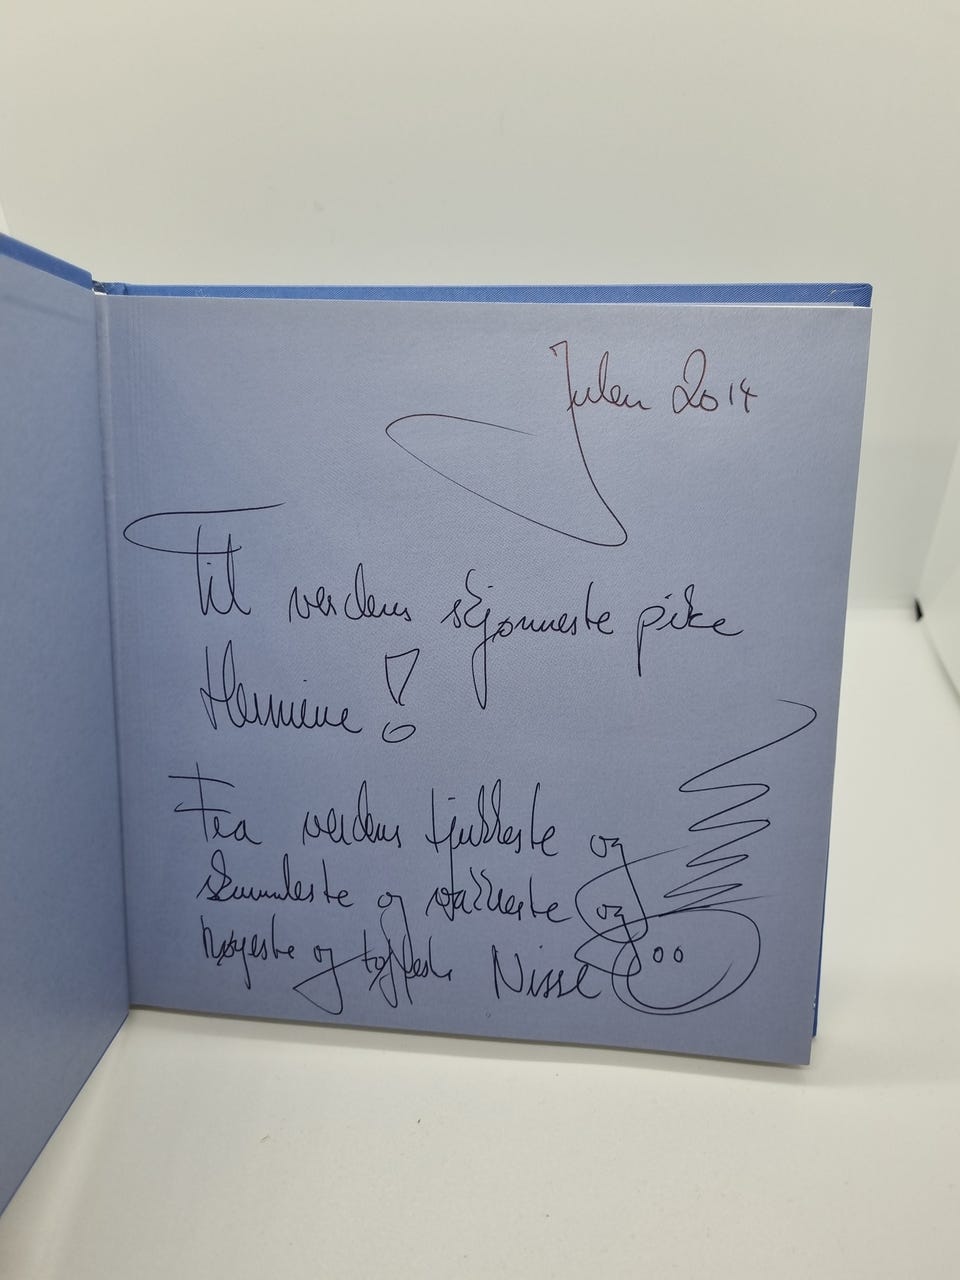 Julen 2014
Til verdens skjønneste pike
Hermine!
Fra verdens tjukkeste og
skrumleste og vakreste og
høyeste og tøffeste Nisse